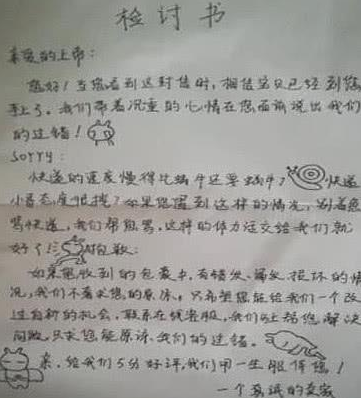 检讨书
亲爱的上帝:
您好!当您看到这封信时,相信宝贝已经到您
手上了。我们带着沉重的心情在您面前说出我们
的过错!
sorry:
快递的速度慢得比蜗牛还要蜗牛?快递
小哥态度很拽?如果您遇到这样的情况,别着急
骂快递,我们帮您骂,这样的体力活交给我们就
好了!抱歉:
如果您收到的包裹中,有错发、漏发、损坏的情
况,我们不奢求您的原谅,只希望您能给我们一个改
过自新的机会,联系在线客服,我们会帮您解决
问题,只求您能原谅我们的过错。
亲,给我们5分好评,我们用一生服侍您!
一个努力的卖家